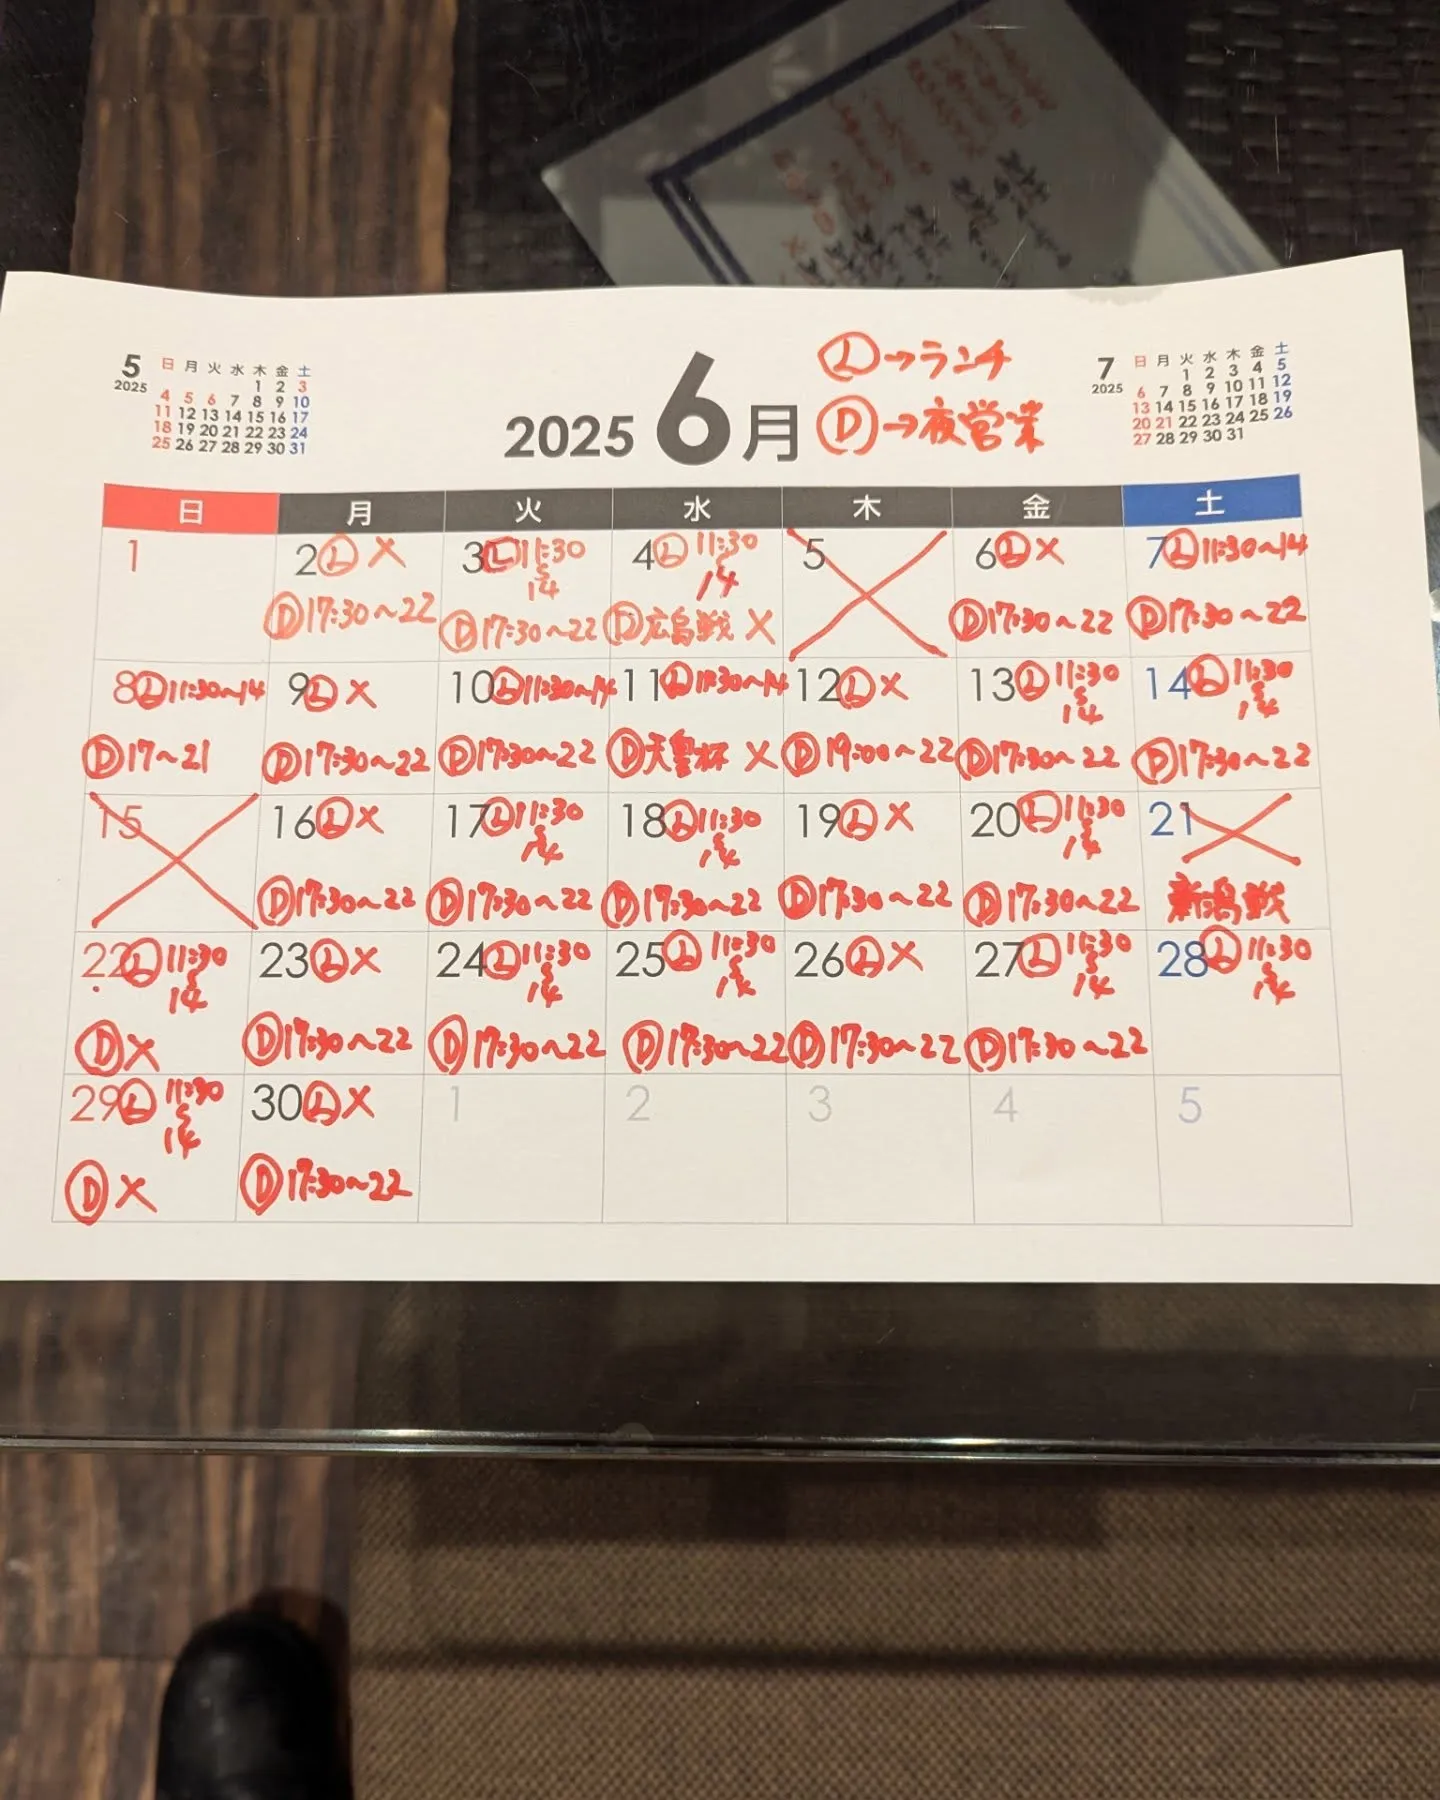 5
2025
日 月 火 水 木 金 土
1 2 3
4 5 6 7 8 9 10
11 12 13 14 15 16 17
18 19 20 21 22 23 24
25 26 27 28 29 30 31
2025 6月
Ⓛ→ランチ
Ⓓ→夜営業
7
2025
日 月 火 水 木 金 土
1 2 3 4 5
6 7 8 9 10 11 12
13 14 15 16 17 18 19
20 21 22 23 24 25 26
27 28 29 30 31
日 月 火 水 木 金 土
1
2 Ⓛ ×
Ⓓ 17:30~22
3 Ⓛ 11:30
~
14
Ⓓ 17:30~22
4 Ⓛ 11:30
~
14
Ⓓ 広島戦 ×
5
6 Ⓛ ×
Ⓓ 17:30~22
7 Ⓛ 11:30~14
Ⓓ 17:30~22
8 Ⓛ 11:30~14
Ⓓ 17~21
9 Ⓛ ×
Ⓓ 17:30~22
10 Ⓛ 11:30~14
Ⓓ 17:30~22
11 Ⓛ 11:30~14
Ⓓ 天皇杯 ×
12 Ⓛ ×
Ⓓ 19:00~22
13 Ⓛ 11:30
~
14
Ⓓ 17:30~22
14 Ⓛ 11:30
~
14
Ⓓ 17:30~22
15
16 Ⓛ ×
Ⓓ 17:30~22
17 Ⓛ 11:30
~
14
Ⓓ 17:30~22
18 Ⓛ 11:30
~
14
Ⓓ 17:30~22
19 Ⓛ ×
Ⓓ 17:30~22
20 Ⓛ 11:30
~
14
Ⓓ 17:30~22
21 ×
新潟戦
22 Ⓛ 11:30
~
14
Ⓓ ×
23 Ⓛ ×
Ⓓ 17:30~22
24 Ⓛ 11:30
~
14
Ⓓ 17:30~22
25 Ⓛ 11:30
~
14
Ⓓ 17:30~22
26 Ⓛ ×
Ⓓ 17:30~22
27 Ⓛ 11:30
~
14
Ⓓ 17:30~22
28 Ⓛ 11:30
~
14
29 Ⓛ 11:30
~
14
Ⓓ ×
30 Ⓛ ×
Ⓓ 17:30~22
1
2
3
4
5